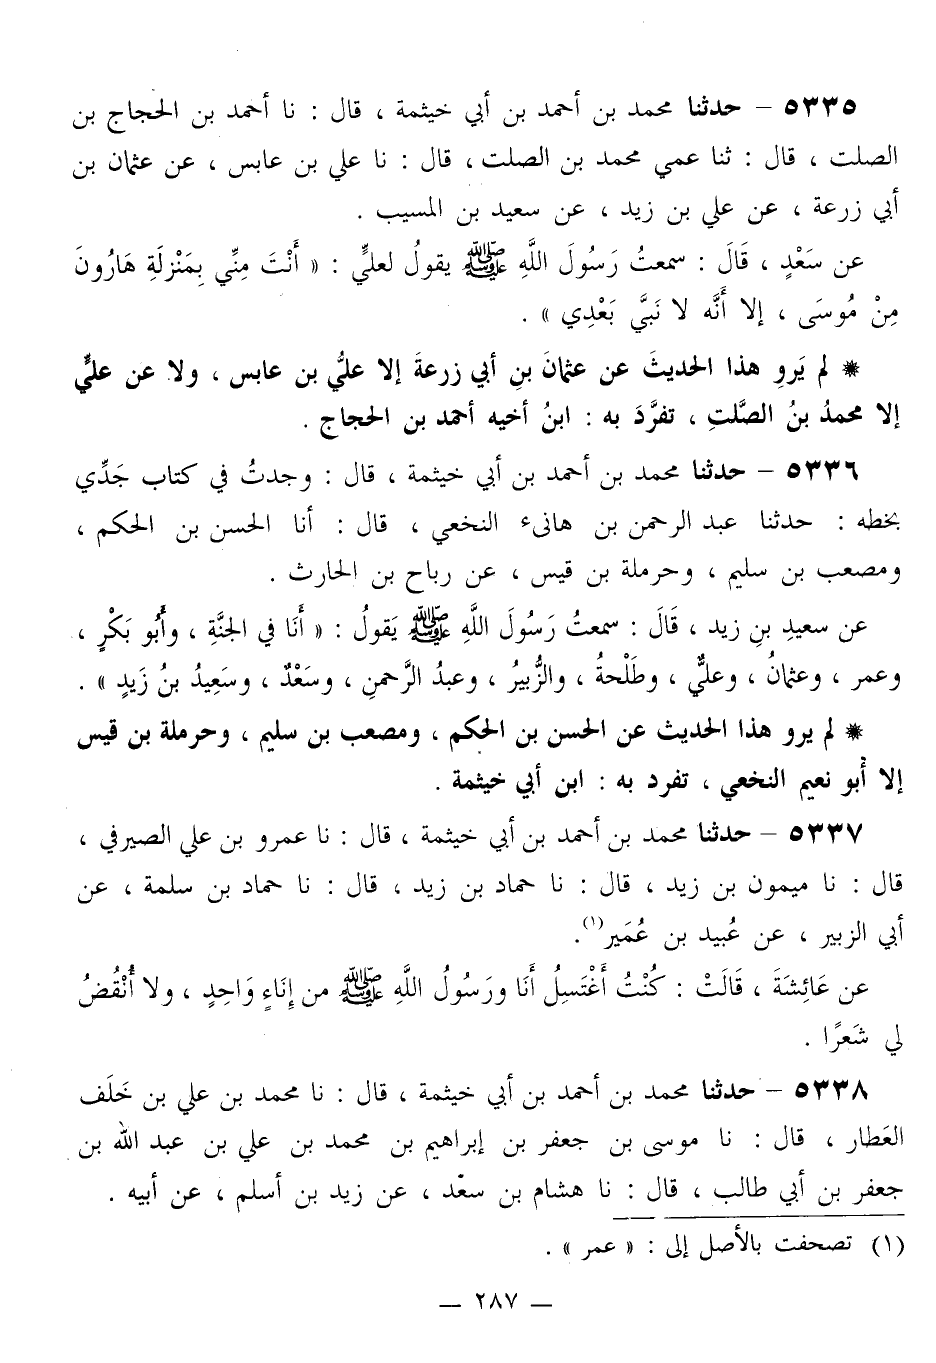 ٥٣٣٥ – حدثنا محمد بن أحمد بن أبي خيثمة ، قال : نا أحمد بن الحجاج بن
الصلت ، قال : ثنا عمي محمد بن الصلت ، قال : نا علي بن عابس ، عن عثمان بن
أبي زرعة ، عن علي بن زيد ، عن سعيد بن المسيب .
عن سَعْدٍ ، قَالَ : سمعتُ رَسُولَ اللَّهِ ﷺ يقولُ لعليٍّ : « أَنْتَ مِنِّي بِمَنْزِلَةِ هَارُونَ
مِنْ مُوسَى ، إلا أَنَّه لا نَبَّي بَعْدِي » .
* لم يَروِ هذا الحديثَ عن عثمانَ بنِ أبي زرعةَ إلا عليُّ بن عابس ، ولا عن عليٍّ
إلا محمدُ بنُ الصَّلتِ ، تفرَّدَ به : ابنُ أخيه أحمد بن الحجاج .
٥٣٣٦ – حدثنا محمد بن أحمد بن أبي خيثمة ، قال : وجدتُ في كتاب جَدِّي
بخطه : حدثنا عبد الرحمن بن هانىء النخعي ، قال : أنا الحسن بن الحكم ،
ومصعب بن سليم ، وحرملة بن قيس ، عن رباح بن الحارث .
عن سعيدِ بنِ زيد ، قَالَ : سمعتُ رَسُولَ اللَّهِ ﷺ يَقولُ : « أَنَا في الجنَّةِ ، وأَبُو بَكْرٍ ،
وعمر ، وعثمانُ ، وعليٌّ ، وطَلْحةُ ، والزُّبيرُ ، وعبدُ الرَّحمنِ ، وسَعْدٌ ، وسَعِيدُ بنُ زَيدٍ » .
* لم يرو هذا الحديث عن الحسن بن الحكم ، ومصعب بن سليم ، وحرملة بن قيس
إلا أبو نعيم النخعي ، تفرد به : ابن أبي خيثمة .
٥٣٣٧ – حدثنا محمد بن أحمد بن أبي خيثمة ، قال : نا عمرو بن علي الصيرفي ،
قال : نا ميمون بن زيد ، قال : نا حماد بن زيد ، قال : نا حماد بن سلمة ، عن
أبي الزبير ، عن عُبيد بن عُمَير(١).
عن عَائِشَةَ ، قَالَتْ : كُنْتُ أَغْتَسِلُ أَنَا ورَسُولُ اللَّهِ ﷺ من إِنَاءٍ وَاحِدٍ ، ولا أُنْقُضُ
لي شَعرًا .
٥٣٣٨ – حدثنا محمد بن أحمد بن أبي خيثمة ، قال : نا محمد بن علي بن خَلَف
العَطار ، قال : نا موسى بن جعفر بن إبراهيم بن محمد بن علي بن عبد الله بن
جعفر بن أبي طالب ، قال : نا هشام بن سعْد ، عن زيد بن أسلم ، عن أبيه .
(١) تصحفت بالأصل إلى : « عمر » .
— ٢٨٧ —